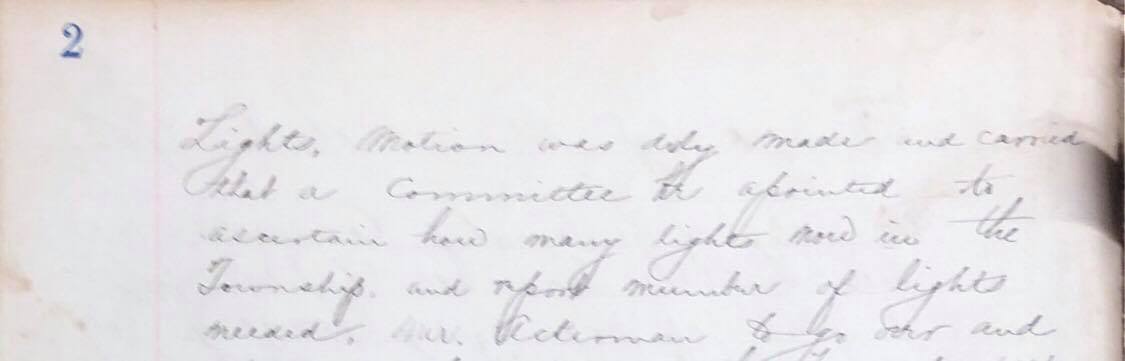 2
Lights. Motion was duly made and carried
that a Committee be apointed to
ascertain how many lights now in the
Township. and report number of lights
needed. Mr. Ackerman to go over and